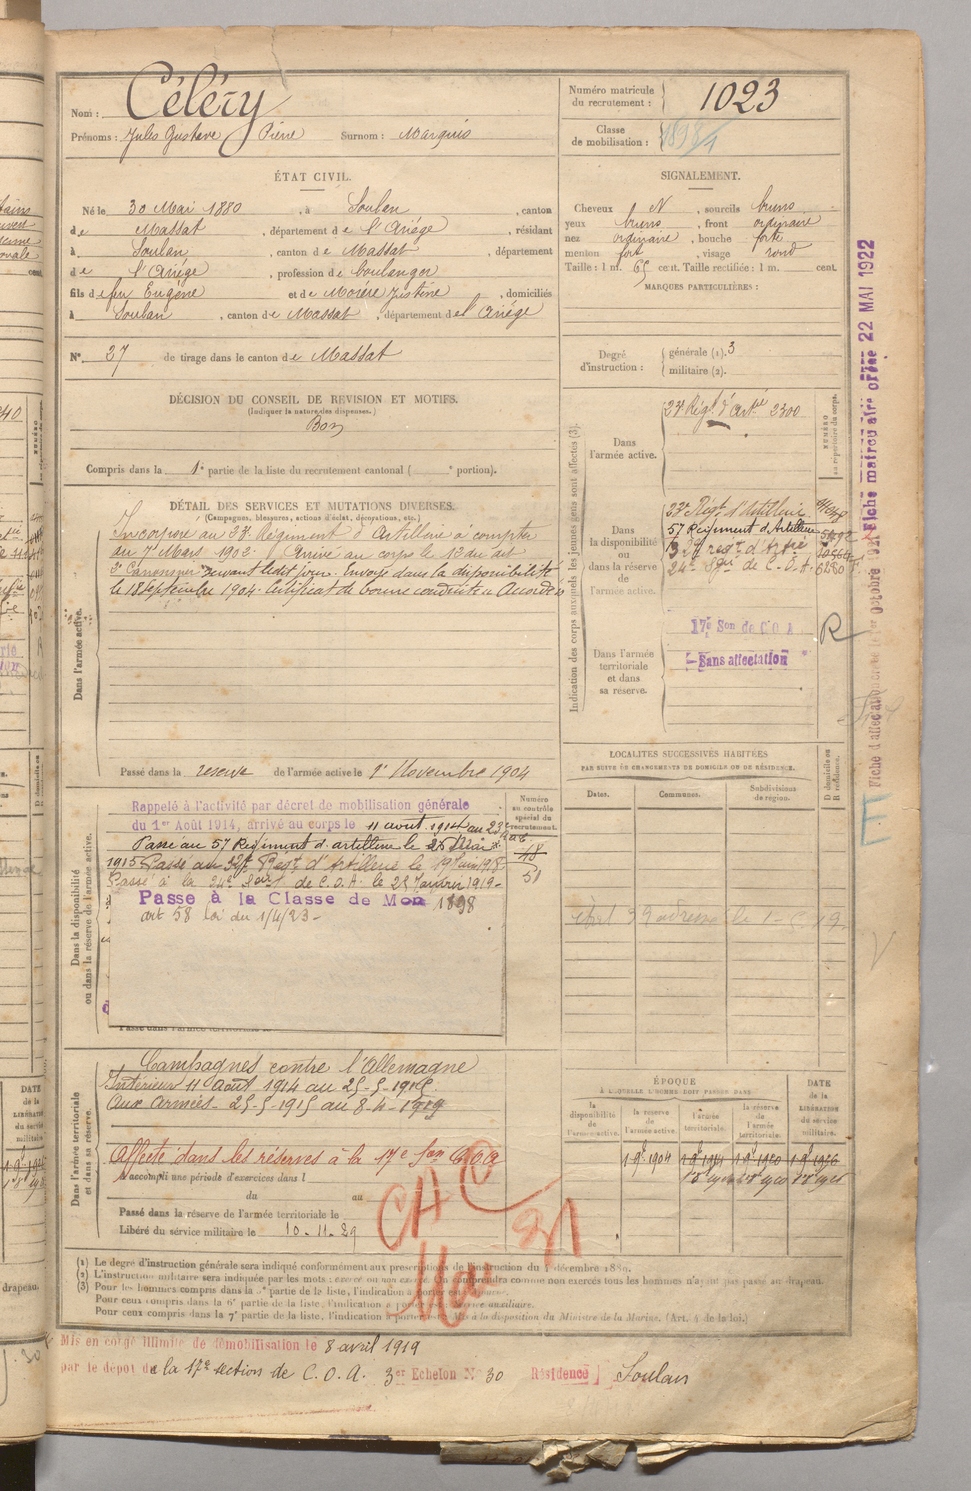 Nom : Céléry
Prénoms : Jules Gustave Pierre Surnom : Marquis
Numéro matricule du recrutement : 1023
Classe de mobilisation : 1898/1
ÉTAT CIVIL.
Né le 30 Mai 1880, à Soulan, canton
de Massat, département de l'Ariége, résidant
à Soulan, canton de Massat, département
de l'Ariége, profession de boulanger
fils de feu Eugène et de Morère Justine, domiciliés
à Soulan, canton de Massat, département de l'Ariége
N° 27 de tirage dans le canton de Massat
SIGNALEMENT.
Cheveux N, sourcils bruns
yeux bruns, front ordinaire
nez ordinaire, bouche forte
menton fort, visage rond
Taille : 1 m. 65 cent. Taille rectifiée : 1 m. cent.
MARQUES PARTICULIÈRES :
Degré d'instruction : générale (1). 3
militaire (2).
DÉCISION DU CONSEIL DE REVISION ET MOTIFS.
(Indiquer la nature des dispenses.)
Bon
Compris dans la 1e partie de la liste du recrutement cantonal ( e portion).
DÉTAIL DES SERVICES ET MUTATIONS DIVERSES.
(Campagnes, blessures, actions d'éclat, décorations, etc.)
Dans l'armée active.
Incorporé au 23e Régiment d'Artillerie à compter
du 7 Mars 1902. Arrivé au corps le 12 du dit
2e Canonnier servant le dit jour. Envoyé dans la disponibilité
le 18 Septembre 1904. Certificat de bonne conduite « Accordé »
Passé dans la réserve de l'armée active le 1er Novembre 1904
Indication des corps auxquels les jeunes gens sont affectés (3).
NUMÉRO au répertoire du corps.
Dans l'armée active.
23e Régt d'Artie 2300
Dans la disponibilité ou dans la réserve de l'armée active.
23e Régt d'Artillerie
57 Régiment d'Artillerie
24e Son de C.O.A. 6280
Dans l'armée territoriale et dans sa réserve.
17e Son de C O A
R
Sans affectation
LOCALITÉS SUCCESSIVES HABITÉES
PAR SUITE DE CHANGEMENTS DE DOMICILE OU DE RÉSIDENCE.
Dates. Communes. Subdivisions de région. D domicile ou R résidence.
Dans la disponibilité ou dans la réserve de l'armée active.
Numéro au contrôle spécial du recrutement.
Rappelé à l'activité par décret de mobilisation générale
du 1er Août 1914, arrivé au corps le 11 août 1914 au 23e
Passé au 57 Régiment d'artillerie le 26 Mai
1915 Passé au Régt d'Artillerie le 19 Juin 1918
Passé à la 24e Sect de C.O.A. le 25 Janvier 1919-
Passé à la Classe de Mon 1898
art 58 Loi du 1/4/23 -
48
51
Passé dans l'armée territoriale le
Dans l'armée territoriale et dans sa réserve.
Campagnes contre l'Allemagne
Intérieur 11 Août 1914 au 25-5-1915.
Aux Armées - 25-5-1915 au 8-4-1919
Affecté dans les réserves à la 17e Son C.O.A
A accompli une période d'exercices dans l
du au
Passé dans la réserve de l'armée territoriale le
Libéré du service militaire le 10-11-29
ÉPOQUE
À LAQUELLE L'HOMME DOIT PASSER DANS
la disponibilité de l'armée active. la réserve de l'armée active. l'armée territoriale. la réserve de l'armée territoriale.
DATE de la LIBÉRATION du service militaire.
1.9e 1904
(1) Le degré d'instruction générale sera indiqué conformément aux prescriptions de l'instruction du 4 décembre 1889.
(2) L'instruction militaire sera indiquée par les mots : exercé ou non exercé. On comprendra comme non exercés tous les hommes n'ayant pas passé au drapeau.
(3) Pour les hommes compris dans la
Pour ceux compris dans la 6e partie de la liste, l'indication
Pour ceux compris dans la 7e partie de la liste, l'indication à porter est : Mis à la disposition du Ministre de la Marine. (Art. 4 de la loi.)
Mis en congé illimité de démobilisation le 8 avril 1919
par le dépot de la 17e section de C.O.A. 3er Echelon No 30 Résidence Soulan
22 MAI 1922